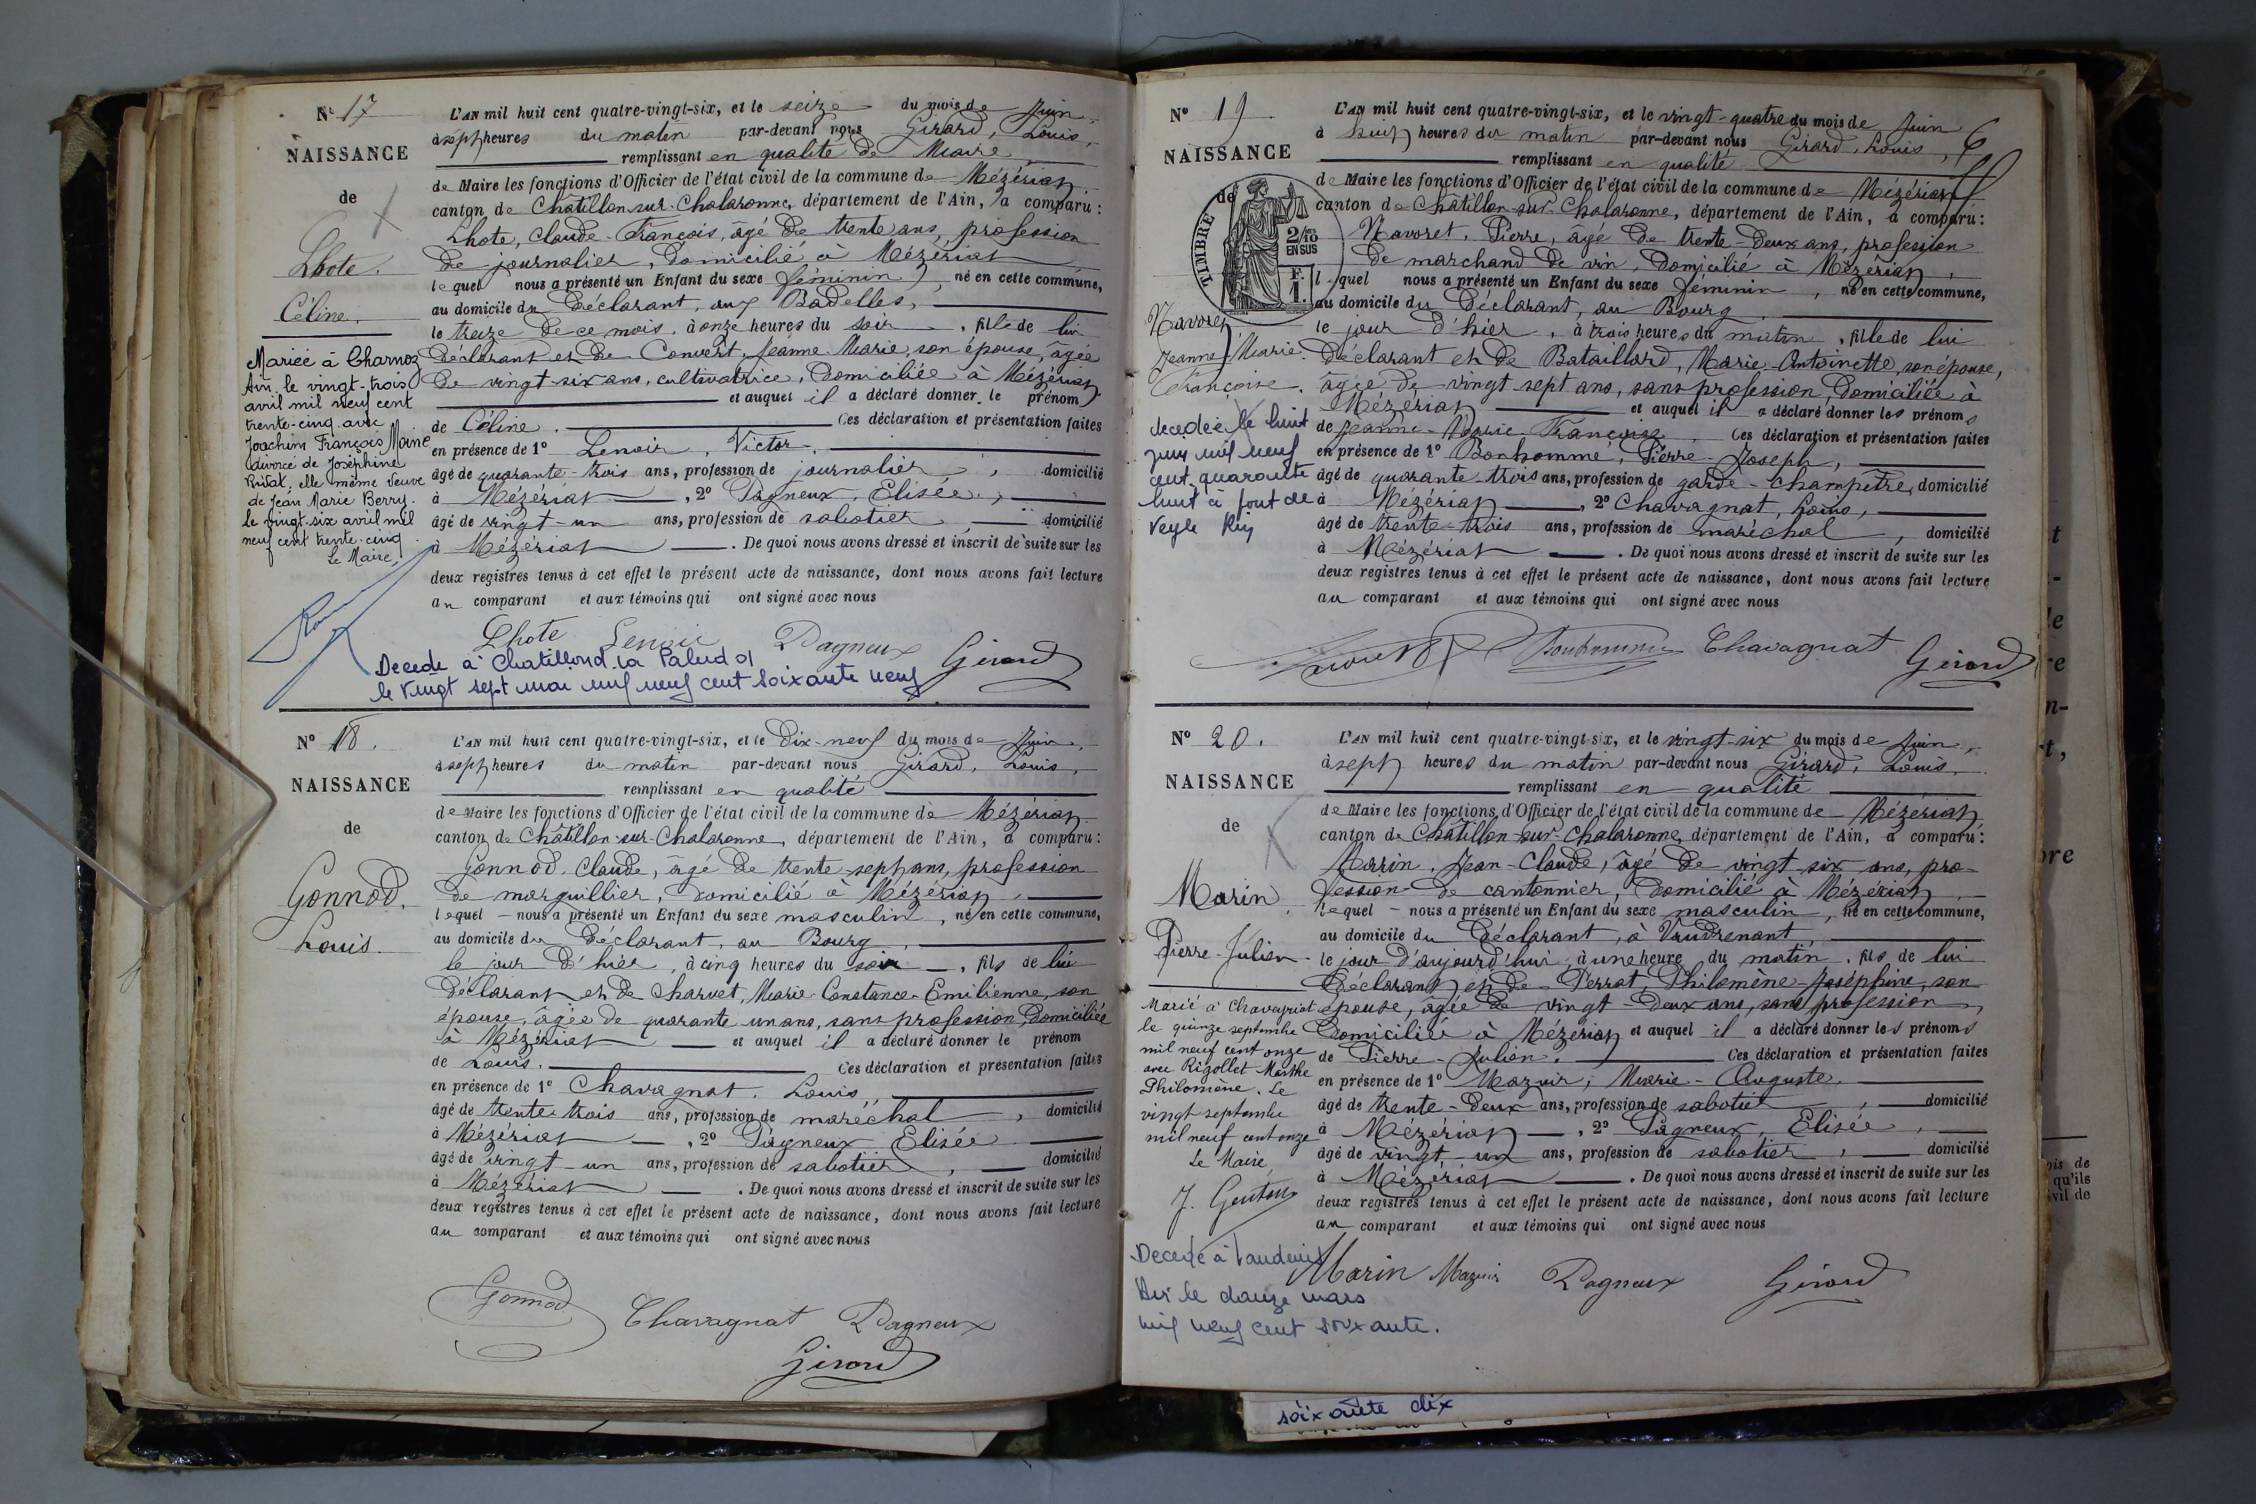 N° 17
NAISSANCE
de
Lhote.
Céline.
Mariée à Charnoz
Ain, le vingt-trois
avril mil neuf cent
trente-cinq avec
Joachim François Moine
divorcé de Joséphine
Rivat, elle même veuve
de Jean Marie Berry.
le vingt-six avril mil
neuf cent trente-cinq
Le Maire,
L'AN mil huit cent quatre-vingt-six, et le seize du mois de Juin,
à sept heures du matin par-devant nous Girard, Louis,
remplissant en qualité de Maire
de Maire les fonctions d'Officier de l'état civil de la commune de Mézériat,
canton de Châtillon-sur-Chalaronne, département de l'Ain, a comparu :
Lhote, Claude-François, âgé de trente ans, profession
de journalier, domicilié à Mézériat
lequel nous a présenté un Enfant du sexe féminin, né en cette commune,
au domicile du déclarant, aux Badelles,
le treize de ce mois, à onze heures du soir, fille de lui
déclarant et de Convert, Jeanne-Marie, son épouse, âgée
de vingt-six ans, cultivatrice, domiciliée à Mézériat
et auquel il a déclaré donner le prénom
de Céline. Ces déclaration et présentation faites
en présence de 1° Lenoir, Victor,
âgé de quarante-trois ans, profession de journalier, domicilié
à Mézériat, 2° Pagneux, Elisée,
âgé de vingt-un ans, profession de sabotier, domicilié
à Mézériat. De quoi nous avons dressé et inscrit de suite sur les
deux registres tenus à cet effet le présent acte de naissance, dont nous avons fait lecture
au comparant et aux témoins qui ont signé avec nous
Lhote Lenoir Pagneux Girard
Decede à Chatillon la Palud 01
le vingt sept mai mil neuf cent soixante neuf
N° 18.
NAISSANCE
de
Gonnod.
Louis.
L'AN mil huit cent quatre-vingt-six, et le dix-neuf du mois de Juin,
à sept heures du matin par-devant nous Girard, Louis,
remplissant en qualité
de Maire les fonctions d'Officier de l'état civil de la commune de Mézériat,
canton de Châtillon-sur-Chalaronne, département de l'Ain, a comparu :
Gonnod, Claude, âgé de trente-sept ans, profession
de marguillier, domicilié à Mézériat,
lequel nous a présenté un Enfant du sexe masculin, né en cette commune,
au domicile du déclarant, au Bourg,
le jour d'hier, à cinq heures du soir, fils de lui
déclarant et de Charvet, Marie-Constance-Emilienne, son
épouse, âgée de quarante un ans, sans profession, domiciliée
à Mézériat et auquel il a déclaré donner le prénom
de Louis. Ces déclaration et présentation faites
en présence de 1° Chavagnat, Louis,
âgé de trente-trois ans, profession de maréchal, domicilié
à Mézériat, 2° Pagneux Elisée
âgé de vingt-un ans, profession de sabotier, domicilié
à Mézériat. De quoi nous avons dressé et inscrit de suite sur les
deux registres tenus à cet effet le présent acte de naissance, dont nous avons fait lecture
au comparant et aux témoins qui ont signé avec nous
Gonnod Chavagnat Pagneux
Girard
N° 19
NAISSANCE
de
TIMBRE
2/10 EN SUS
F. 1.
Navoret
Jeanne-Marie
Françoise.
décédée le huit
juin mil neuf
cent quarante
huit à Pont de
Veyle
L'AN mil huit cent quatre-vingt-six, et le vingt-quatre du mois de Juin
à heures du matin par-devant nous Girard, Louis,
remplissant en qualité
de Maire les fonctions d'Officier de l'état civil de la commune de Mézériat
canton de Châtillon-sur-Chalaronne, département de l'Ain, a comparu :
Navoret, Pierre, âgé de trente-deux ans, profession
de marchand de vin, domicilié à Mézériat,
lequel nous a présenté un Enfant du sexe féminin, né en cette commune,
au domicile du déclarant, au Bourg,
le jour d'hier, à trois heures du matin, fille de lui
déclarant et de Bataillard, Marie-Antoinette, son épouse,
âgée de vingt sept ans, sans profession, domiciliée à
Mézériat et auquel il a déclaré donner les prénoms
de Jeanne-Marie-Françoise. Ces déclaration et présentation faites
en présence de 1° Bonhomme, Pierre-Joseph,
âgé de quarante-trois ans, profession de garde-champêtre, domicilié
à Mézériat, 2° Chavagnat, Louis,
âgé de trente-trois ans, profession de maréchal, domicilié
à Mézériat. De quoi nous avons dressé et inscrit de suite sur les
deux registres tenus à cet effet le présent acte de naissance, dont nous avons fait lecture
au comparant et aux témoins qui ont signé avec nous
Bonhomme Chavagnat Girard
N° 20.
NAISSANCE
de
Marin.
Pierre-Julien
Marié à Chavagnat
le quinze septembre
mil neuf cent onze
avec Rigollet Marthe
Philomène. Le
vingt septembre
mil neuf cent onze
Le Maire,
L'AN mil huit cent quatre-vingt-six, et le vingt-six du mois de Juin,
à sept heures du matin par-devant nous Girard, Louis,
remplissant en qualité
de Maire les fonctions d'Officier de l'état civil de la commune de Mézériat
canton de Châtillon-sur-Chalaronne, département de l'Ain, a comparu :
Marin, Jean-Claude, âgé de vingt-six ans, pro-
fession de cantonnier, domicilié à Mézériat
lequel nous a présenté un Enfant du sexe masculin, né en cette commune,
au domicile du déclarant, à Vaudrenant,
le jour d'aujourd'hui, à une heure du matin, fils de lui
déclarant et de Perrat, Philomène-Joséphine, son
épouse, âgée de vingt-deux ans, sans profession,
domiciliée à Mézériat et auquel il a déclaré donner les prénoms
de Pierre-Julien. Ces déclaration et présentation faites
en présence de 1° Mazuir, Marie-Auguste,
âgé de trente-deux ans, profession de sabotier, domicilié
à Mézériat, 2° Pagneux, Elisée,
âgé de vingt-un ans, profession de sabotier, domicilié
à Mézériat. De quoi nous avons dressé et inscrit de suite sur les
deux registres tenus à cet effet le présent acte de naissance, dont nous avons fait lecture
au comparant et aux témoins qui ont signé avec nous
Marin Mazuir Pagneux Girard
Decede à
Ain le douze mars
mil neuf cent soixante.
soixante dix